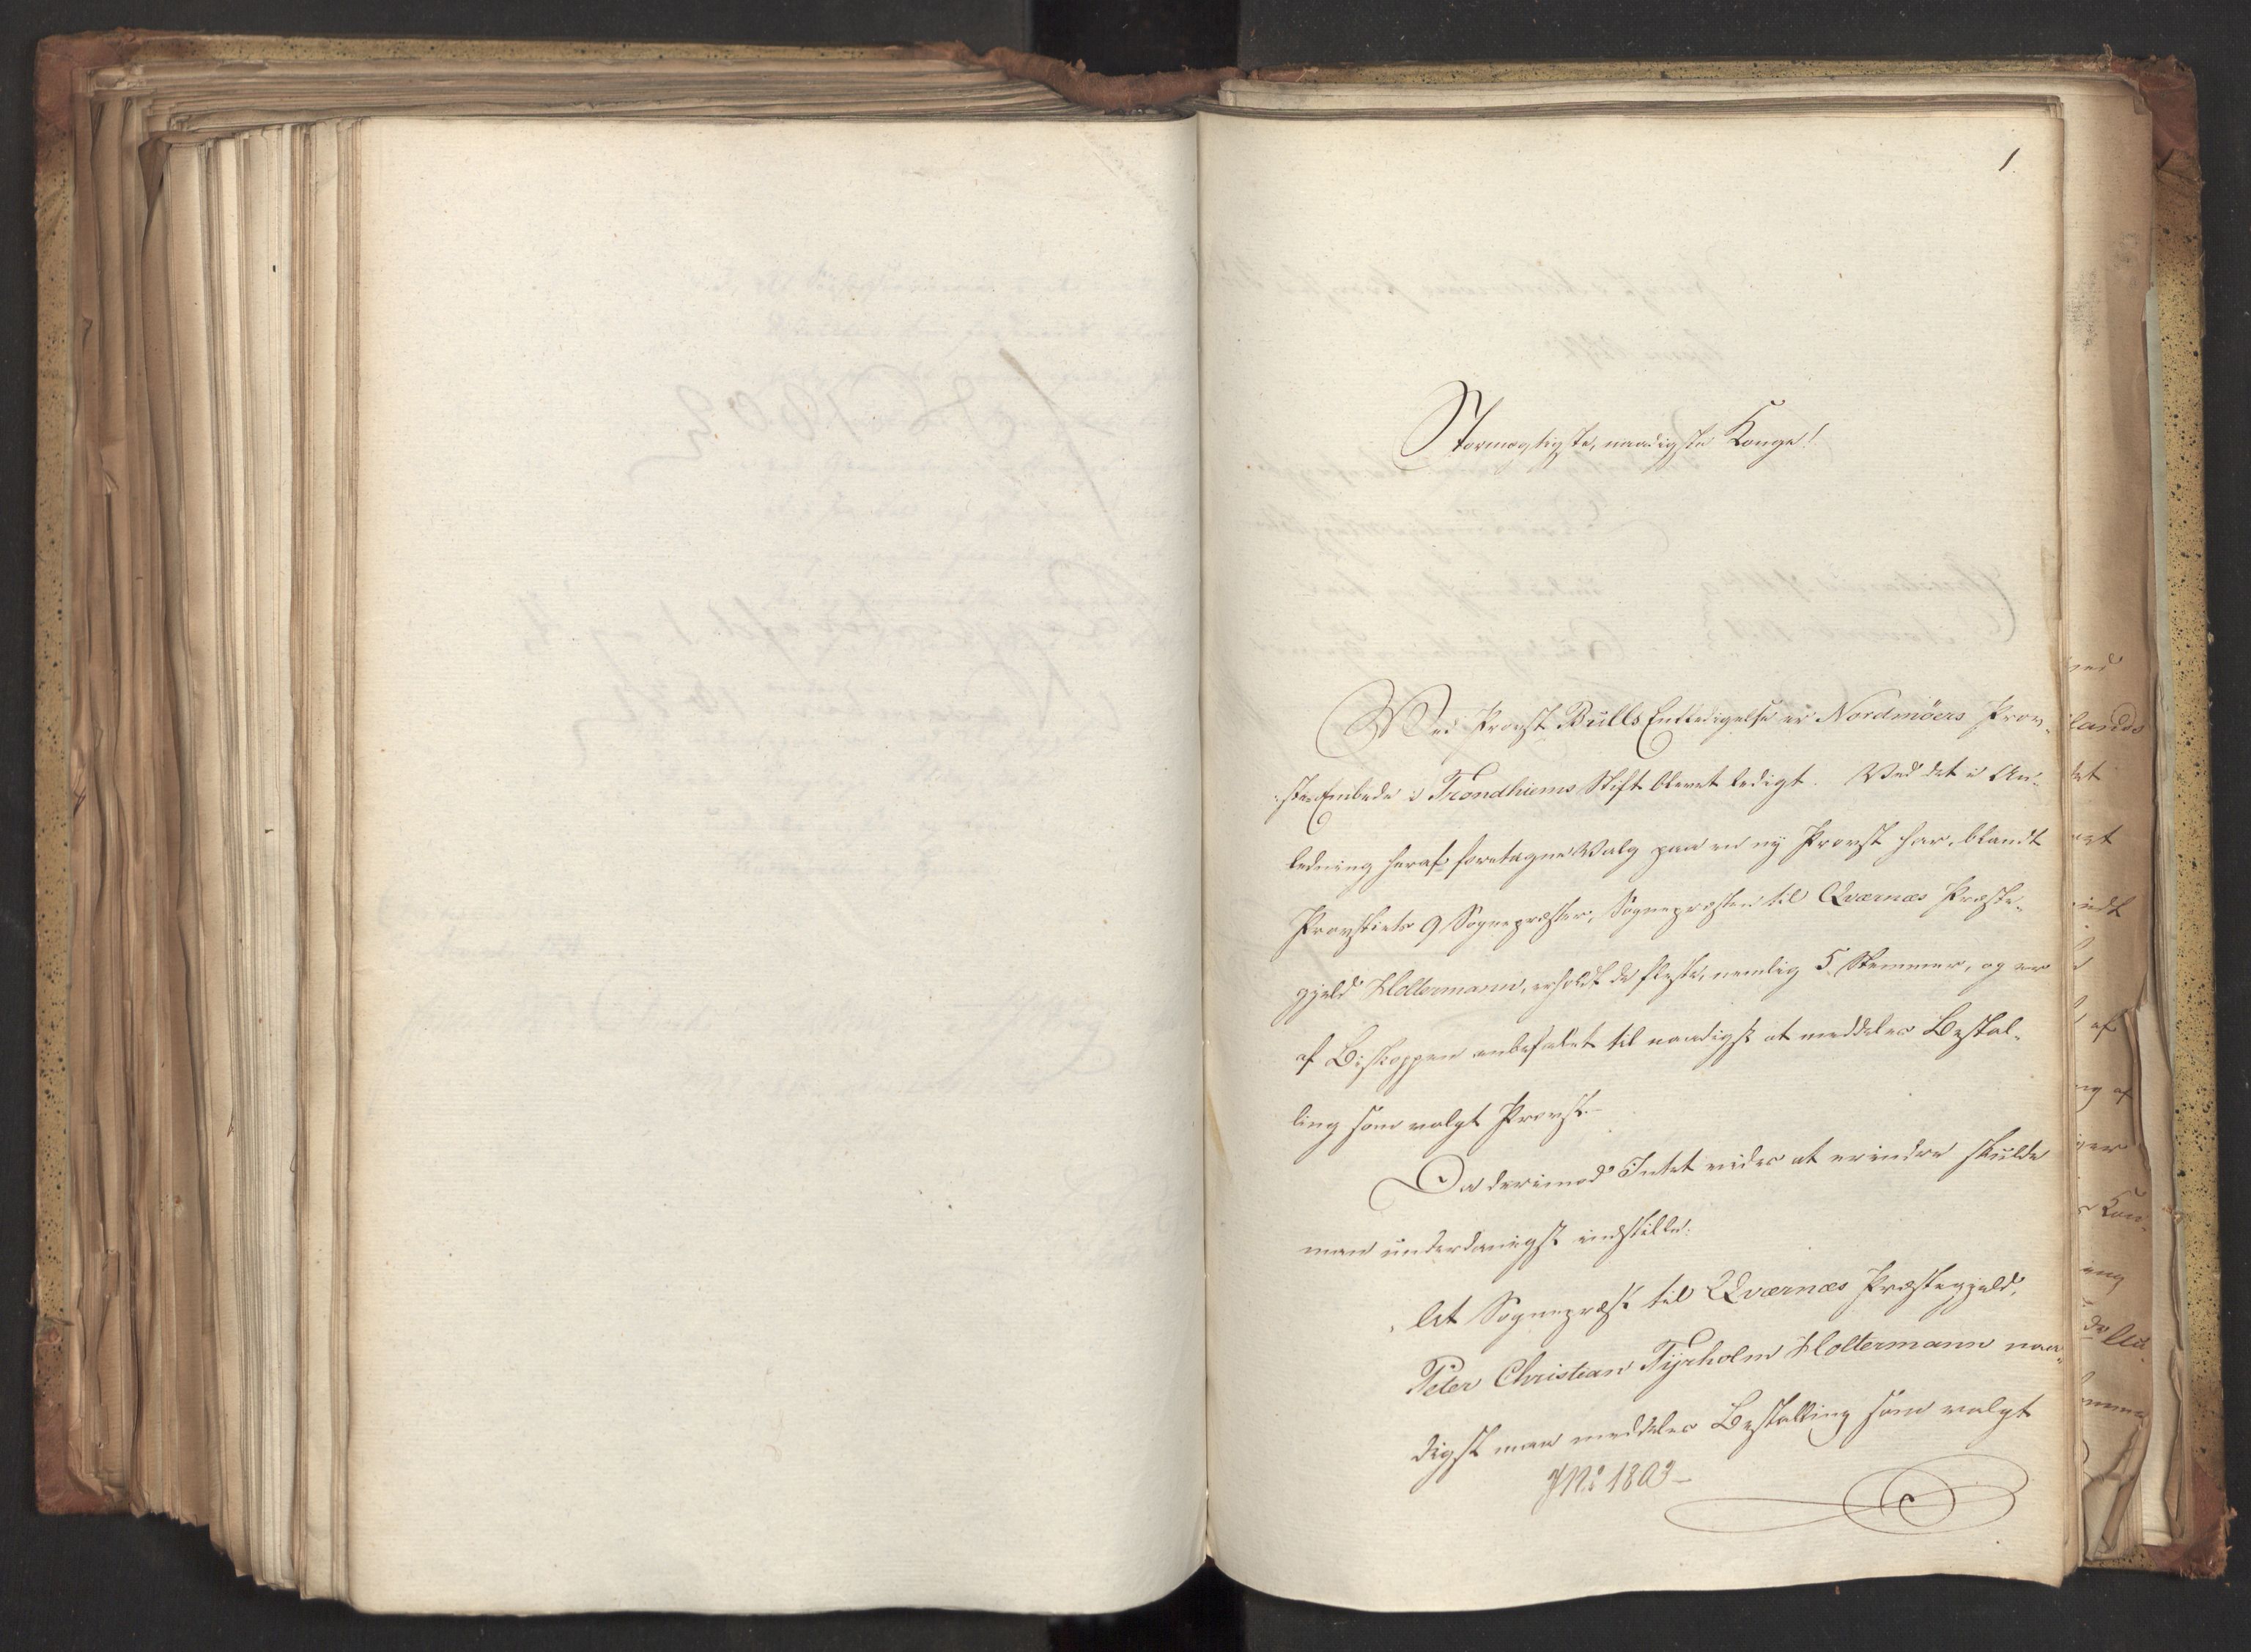 1.
Stormægtigste, naadigste Konge!
Ved Provst Bülls Entledigelse er Nordmöers Prov-
ste-Embede i Trondhiems Stift blevet ledigt. Ved det i An-
ledning heraf foretagne Valg paa en ny Provst har, blandt
Provstiets 9 Sognepræster, Sognepræsten til Qværnæs Præste-
gjeld Holtermann, erholdt de fleste, nemlig 5 Stemmer, og er
af Biskoppen anbefalet til naadigst at meddeles Bestal-
ling som valgt Provst.-
Da derimod Intet vides at erindre skulde
man underdanigst indstille:
At Sognepræst til Qværnæs Præstegjeld,
Peter Christian Tyrholm Holtermann naa-
digst maa meddeles Bestalling som valgt
JN: 1803-